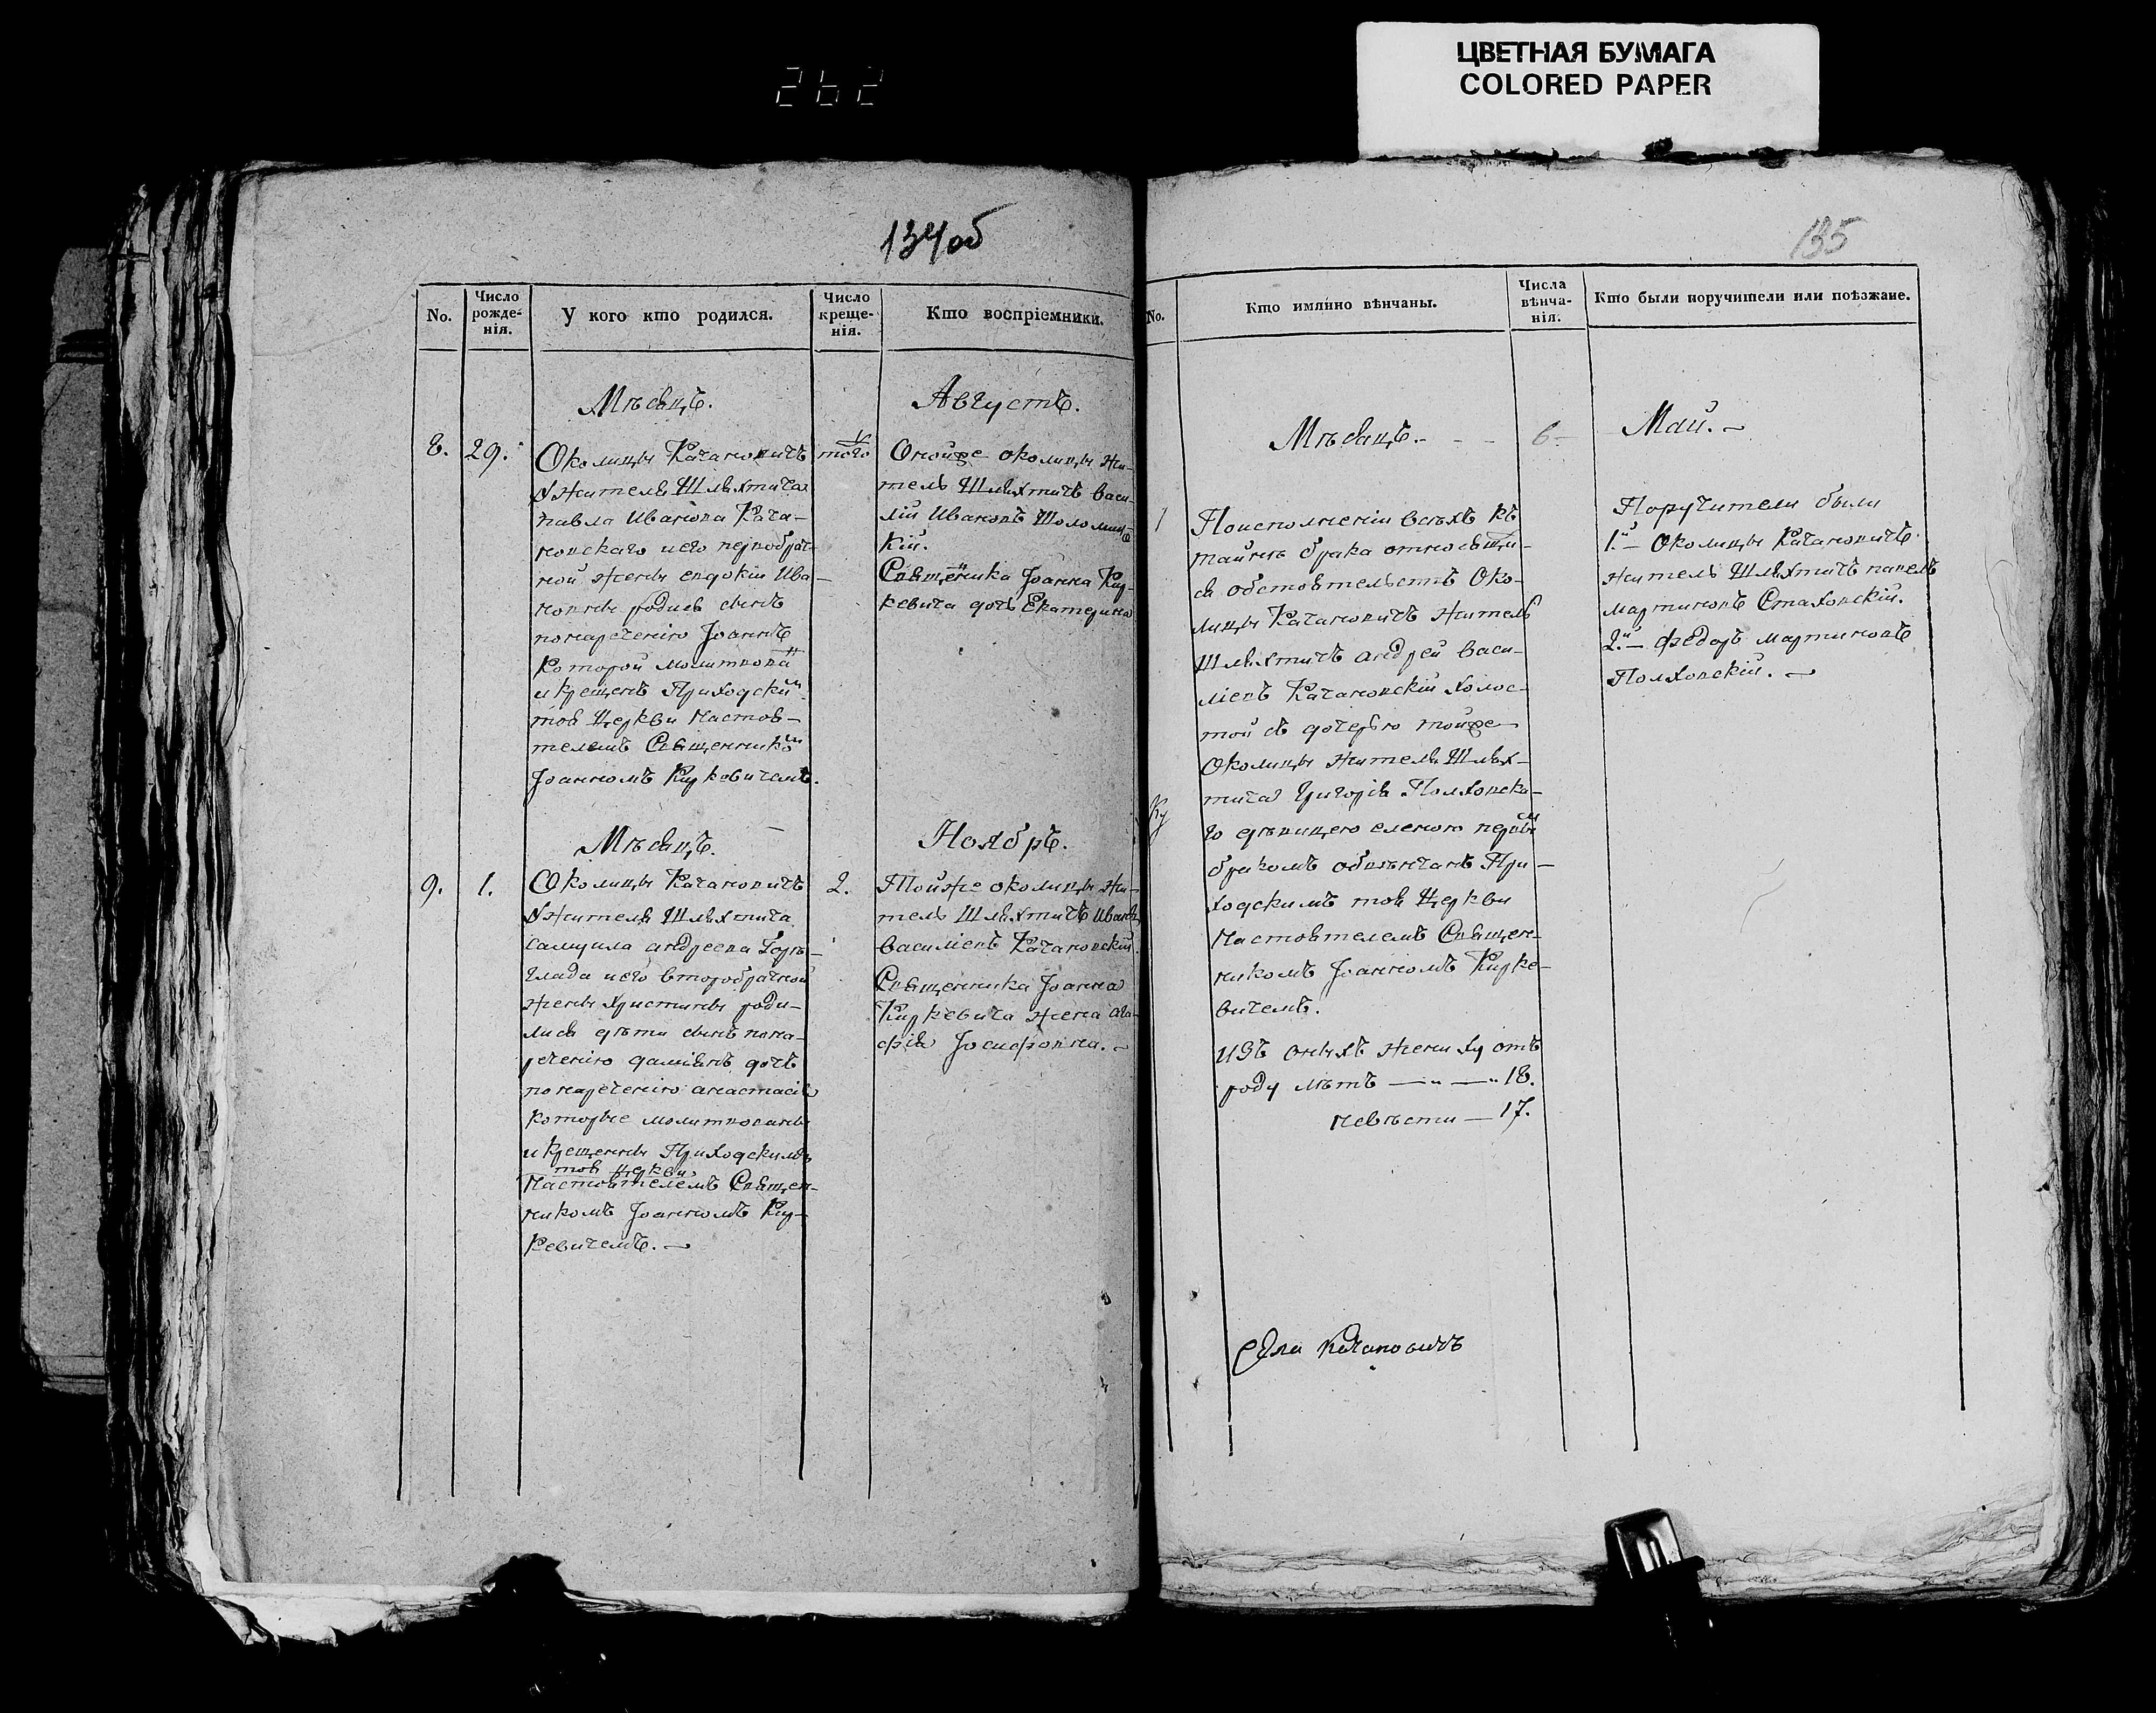 262
ЦВЕТНАЯ БУМАГА
COLORED PAPER
134об
No.
Число рожде-нія.
У кого кто родился.
Число креще-нія.
Кто воспріемники.
Мѣсяцъ.
Августъ.
8.
29.
Околицы Качановичъ
Жителя Шляхтича
павла Иванова Кача-
новскаго и его первобрач-
ной жены евдокіи Ива-
новны родися сынъ
понареченію Іоаннъ
Которой молитвова
и крещенъ Приходским
тоя Церкви Настоя-
телемъ Священником
Іоанномъ Киркевичемъ.
того
Онойже околицы жи-
тель Шляхтичъ васи-
лій Ивановъ Шоломиц-
кій.
Священника Іоанна Кир-
кевича дочь Екатерина
Мѣсяцъ.
Ноябрь.
9.
1.
Околицы Качановичъ
Жителя Шляхтича
самуила андреева
и его второбрачной
жены христины роди-
лися дѣти сынъ пона-
реченію даміянъ дочь
понареченію анастасія
которые молитвованы
и крещены Приходскимъ
тоя церкви
Настоятелемъ Священ-
никомъ Іоанномъ Кир-
кевичемъ.
2.
Тойже околицы жи-
тель Шляхтичъ Иванъ
василіевъ Качановскій.
Священника Іоанна
Киркевича жена ага-
фія Іосифовна.
135
No.
Кто имянно вѣнчаны.
Числа вѣнча-нія.
Кто были поручители или поѣзжане.
Мѣсяцъ. - - -
6.
Май.
1
Поисполненіи всѣхъ къ
тайнѣ брака относящи-
ся обстоятельствъ Око-
лицы Качановичъ Житель
Шляхтичъ андрей васи-
ліевъ Качановскій холос-
той съ дочерью тойже
Околицы жителя Шлях-
тича Григорія Полховска-
го дѣвицею еленою первы
бракомъ обвѣнчанъ При-
ходскимъ тоя Церкви
Настоятелемъ Священ-
никомъ Іоанномъ Кирке-
вичемъ.
Изъ оныхъ жениху отъ
роду лѣтъ — „ — „ 18.
невѣсти — 17.
Поручители были
1.й — Околицы Качановичъ
житель Шляхтичъ павелъ
мартиновъ Стаховскій.
2.й — Федоръ мартиновъ
Полховскій.
Ку
Качановичъ